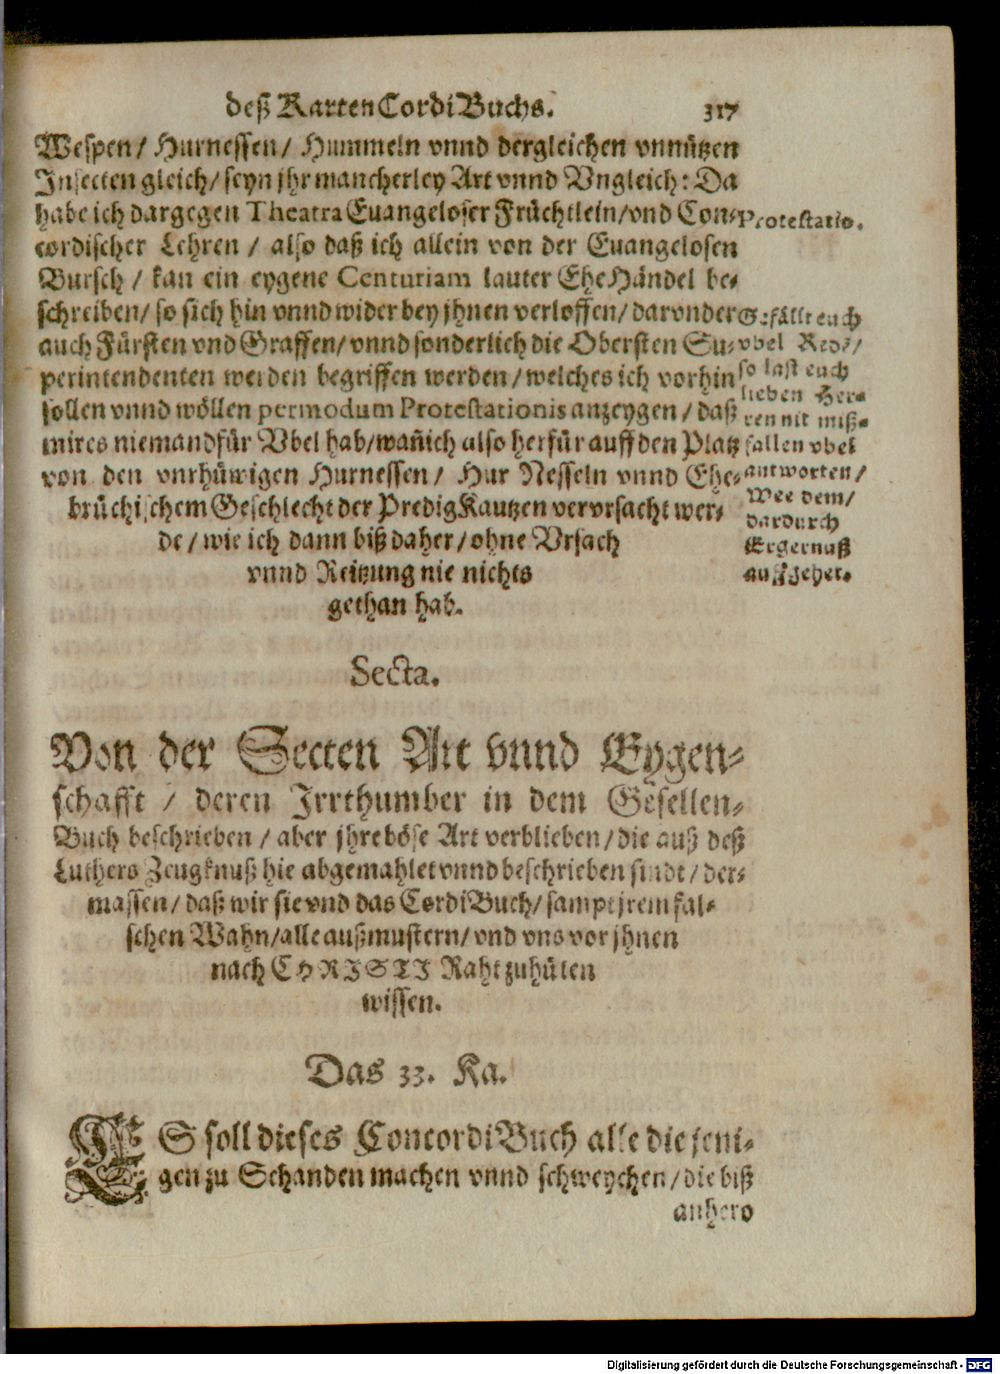 deß KartenCordiBuchs. 317
Wespen/ Hurnessen/ Hummeln vnnd dergleichen vnnützen
Insecten gleich/ seyn jhr mancherley Art vnnd Vngleich: Da
habe ich dargegen Theatra Euangeloser Früchtlein/ vnd Con-
cordischer Lehren / also daß ich allein von der Euangelosen
Bursch / kan ein eygene Centuriam lauter EheHändel be-
schreiben/ so sich hin vnnd wider bey jhnen verloffen/ darvnder
auch Fürsten vnd Graffen/ vnnd sonderlich die Obersten Su-
perintendenten werden begriffen werden/ welches ich vorhin
sollen vnnd wöllen per modum Protestationis anzeygen / daß
mirs niemand für Vbel hab/ wañ ich also herfür auff den Platz
von den vnrhüwigen Hurnessen/ Hur Nesseln vnnd Ehe-
brüchischem Geschlecht der PredigKautzen vervrsacht wer-
de / wie ich dann biß daher/ ohne Vrsach
vnnd Reitzung nie nichts
gethan hab.
Protestatio.
Gefällt euch
vbel Rede/
so last euch
lieben Her-
ren nit miß-
fallen vbel
antworten/
Wee dem/
dardurch
Ergernuß
auffgehet.
Secta.
Von der Secten Art vnnd Eygen-
schafft / deren Irrthumber in dem Gesellen-
Buch beschrieben / aber jhre böse Art verblieben/ die auß deß
Luthers Zeugknuß hie abgemahlet vnnd beschrieben sindt/ der-
massen/ daß wir sie vnd das CordiBuch/ sampt jrem fal-
schen Wahn/ alle außmustern/ vnd vns vor jhnen
nach CHRISTI Raht zu hüten
wissen.
Das 33. Ka.
ES soll dieses ConcordiBuch alle die jeni-
gen zu Schanden machen vnnd schweychen/ die biß
anhero
Digitalisierung gefördert durch die Deutsche Forschungsgemeinschaft - DFG